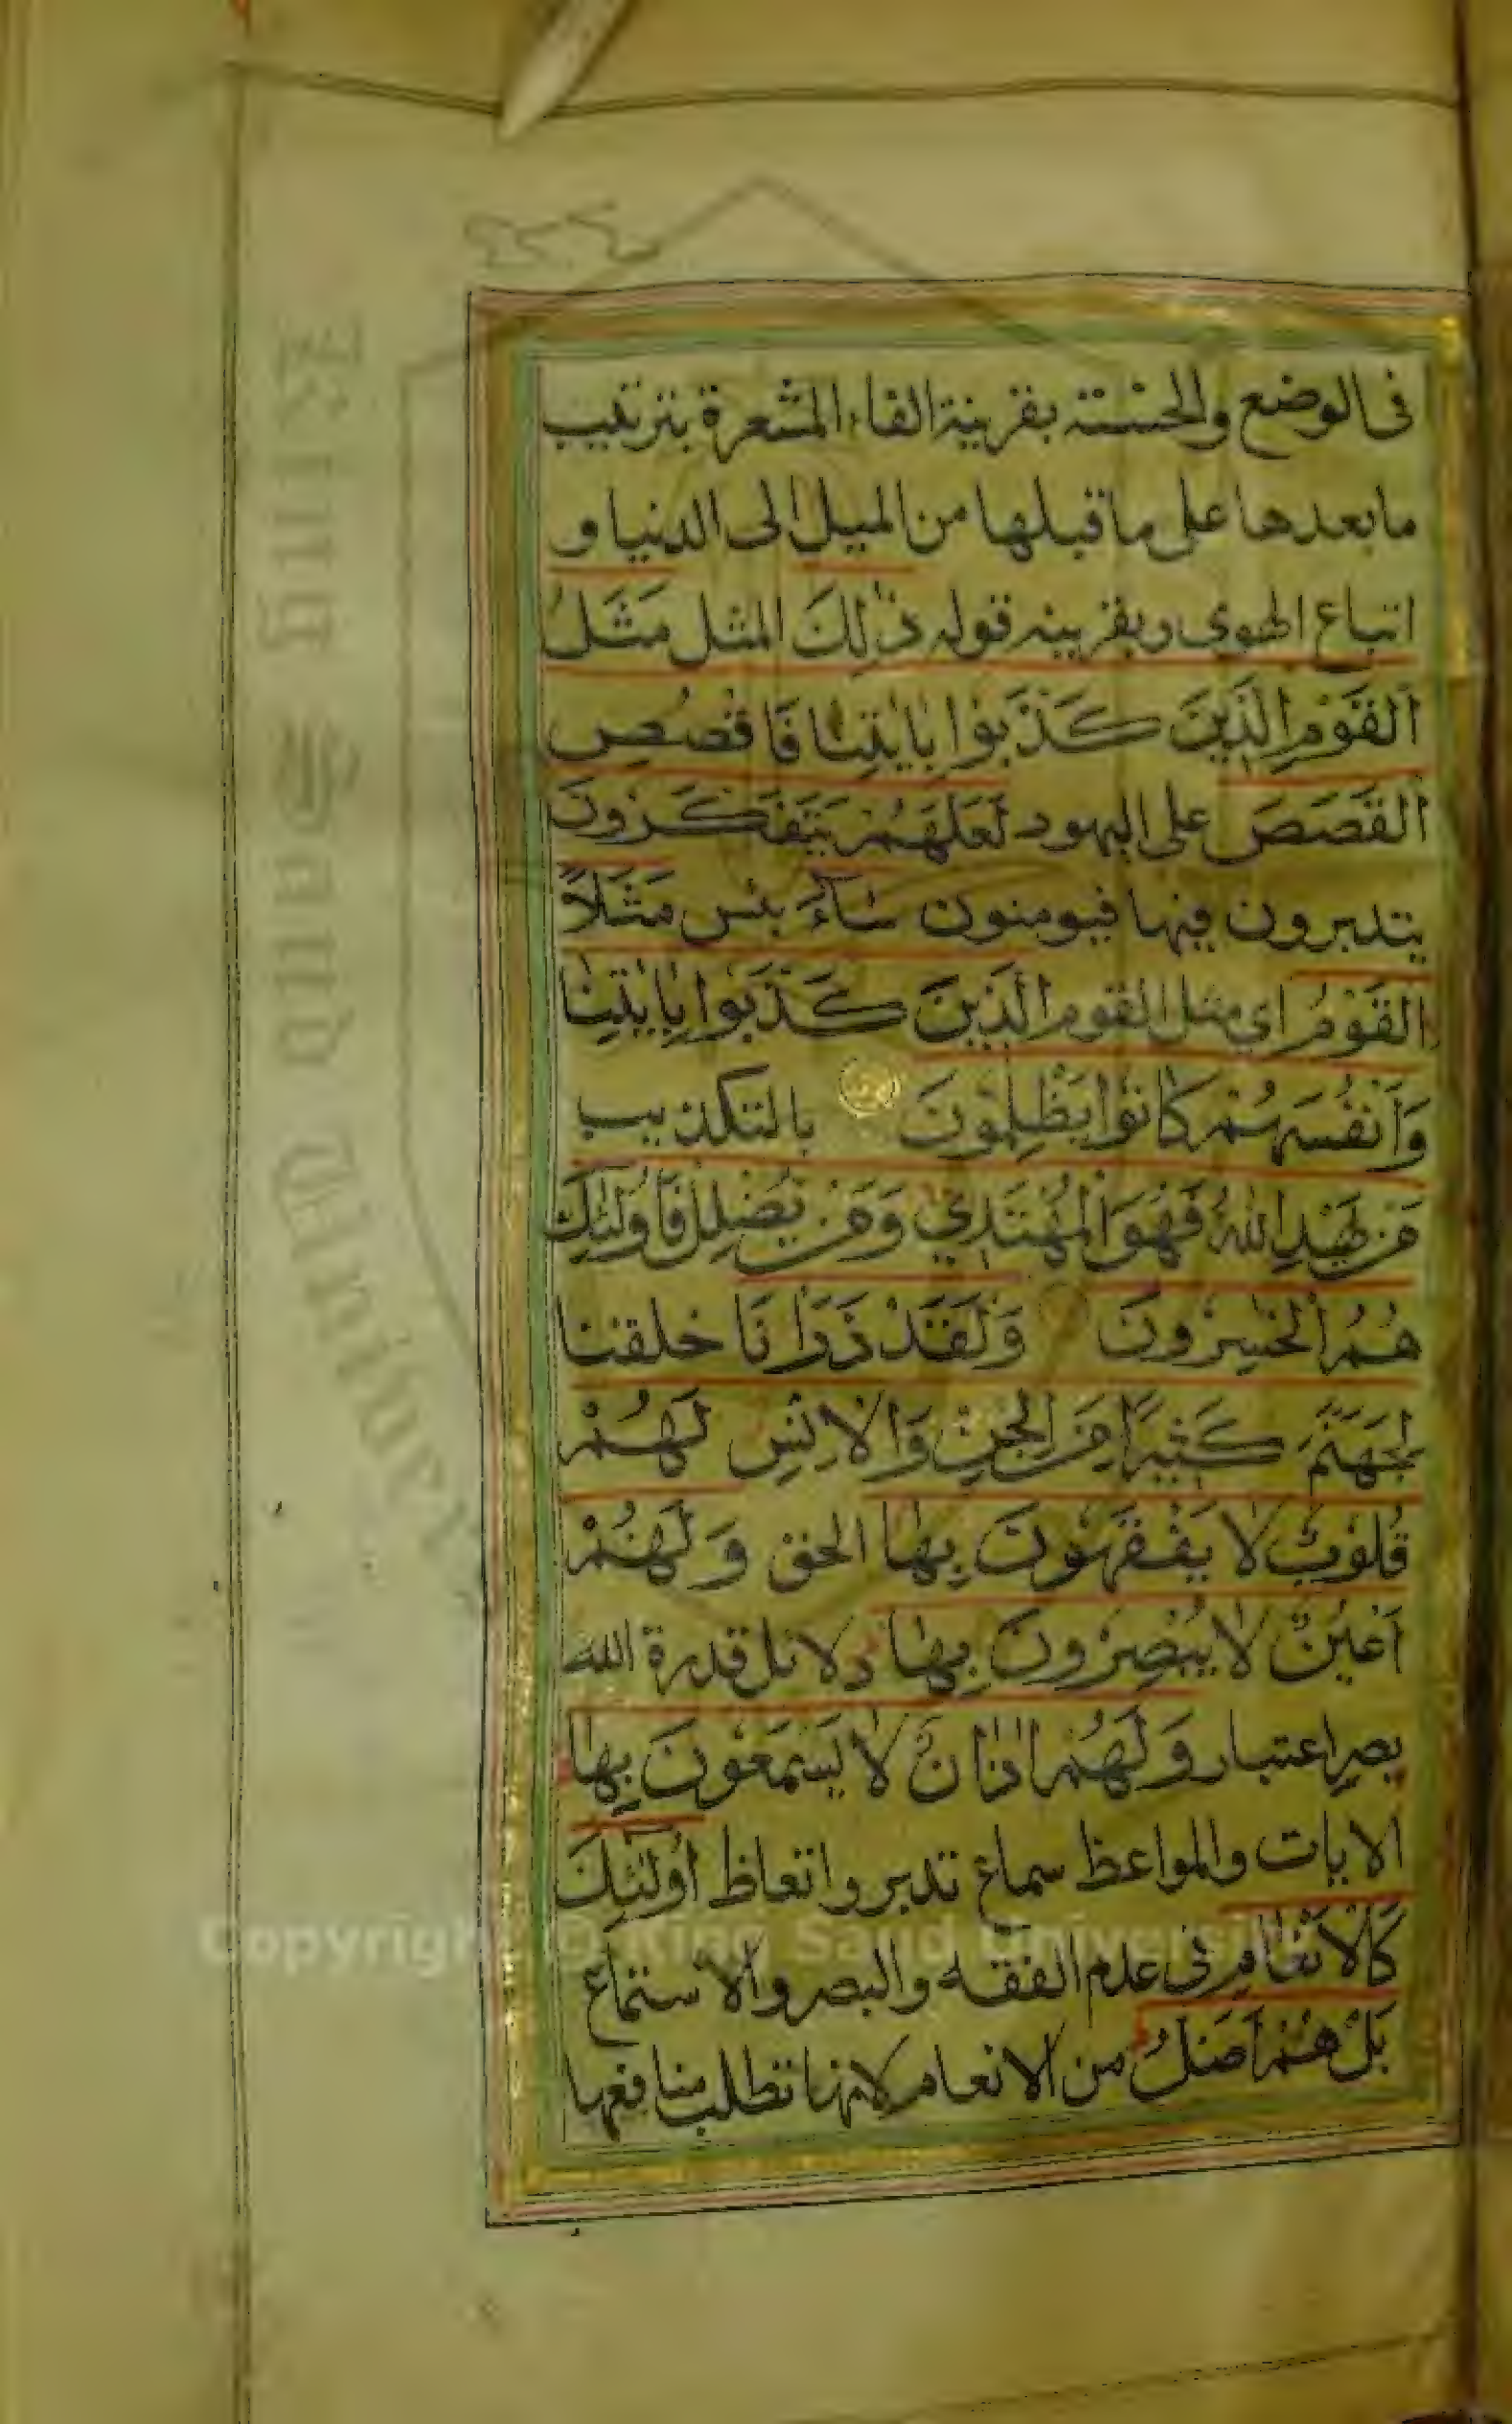 في الوضع والخسة بقرينة الفاء المشعرة بترتيب
ما بعدها على ما قبلها من الميل الى الدنيا و
اتباع الهوى وبقرينه قوله ذٰلِكَ المثل مَثَلُ
اَلْقَوْمِ الَّذِينَ كَذَّبُوا بِاٰيٰتِنَا فَاقْصُصِ
اَلْقَصَصَ على اليهود لَعَلَّهُمْ يَتَفَكَّرُونَ
يتدبرون فيها فيومنون سَاۤءَ بئس مَثَلًا
اَلْقَوْمُ اي مثل القوم الَّذِينَ كَذَّبُوا بِاٰيٰتِنَا
وَاَنْفُسَهُمْ كَانُوا يَظْلِمُونَ بالتكذيب
مَنْ يَهْدِ اللّٰهُ فَهُوَ الْمُهْتَدِي وَمَنْ يُضْلِلْ فَاُولٰئِكَ
هُمُ الْخٰسِرُونَ وَلَقَدْ ذَرَاْنَا خلقنا
لِجَهَنَّمَ كَثِيرًا مِنَ الْجِنِّ وَالْاِنْسِ لَهُمْ
قُلُوبٌ لَا يَفْقَهُونَ بِهَا الحق وَلَهُمْ
اَعْيُنٌ لَا يُبْصِرُونَ بِهَا دلائل قدرة الله
بصر اعتبار وَلَهُمْ اٰذَانٌ لَا يَسْمَعُونَ بِهَا
الايات والمواعظ سماع تدبر واتعاظ اُولٰۤئِكَ
كَالْاَنْعَامِ في عدم الفقه والبصر والاستماع
بَلْ هُمْ اَضَلُّ من الانعام لانها تطلب منافعها
King Saud University
Copyright © King Saud University